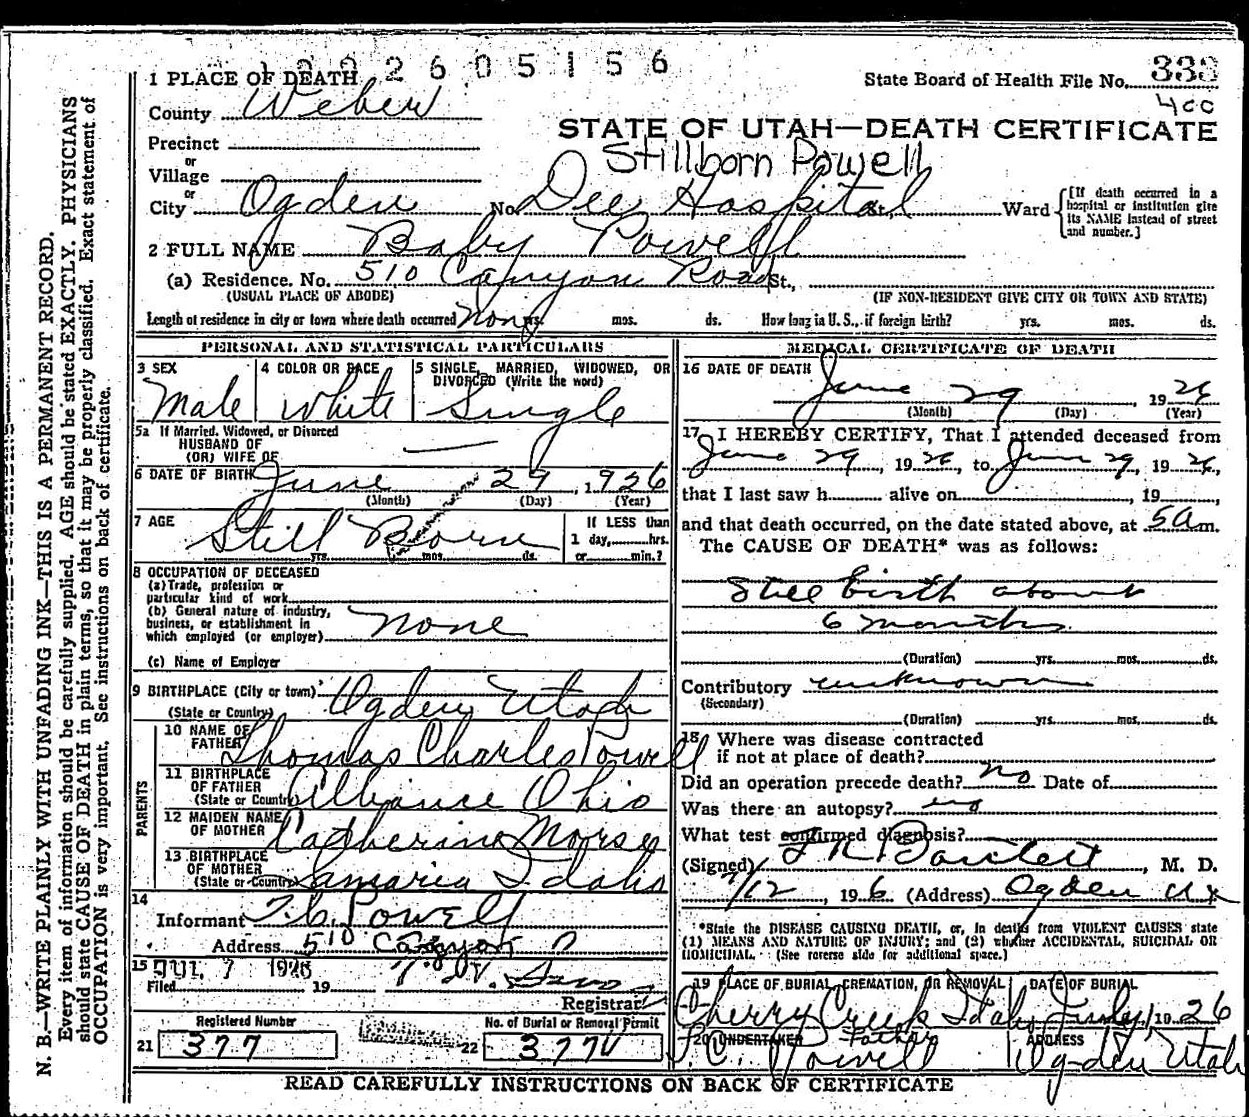 N. B.—WRITE PLAINLY WITH UNFADING INK—THIS IS A PERMANENT RECORD.
Every item of information should be carefully supplied. AGE should be stated EXACTLY. PHYSICIANS
should state CAUSE OF DEATH in plain terms, so that it may be properly classified. Exact statement of
OCCUPATION is very important. See instructions on back of certificate.
2 6 0 5 1 5 6
1 PLACE OF DEATH
State Board of Health File No. 333
400
County Weber
STATE OF UTAH—DEATH CERTIFICATE
Precinct
Stillborn Powell
or
Village
or
City Ogden No. Dee Hospital St., Ward
[If death occurred in a
hospital or institution give
its NAME instead of street
and number.]
2 FULL NAME Baby Powell
(a) Residence. No. 510 Canyon Road St.,
(USUAL PLACE OF ABODE) (IF NON-RESIDENT GIVE CITY OR TOWN AND STATE)
Length of residence in city or town where death occurred None yrs. mos. ds. How long in U. S., if foreign birth? yrs. mos. ds.
PERSONAL AND STATISTICAL PARTICULARS
3 SEX 4 COLOR OR RACE 5 SINGLE, MARRIED, WIDOWED, OR
DIVORCED (Write the word)
Male White Single
5a If Married, Widowed, or Divorced
HUSBAND OF
(OR) WIFE OF
6 DATE OF BIRTH June 29, 1926
(Month) (Day) (Year)
7 AGE Still Born
yrs. mos. ds.
If LESS than
1 day, hrs.
or min.?
8 OCCUPATION OF DECEASED
(a) Trade, profession or
particular kind of work
(b) General nature of industry,
business, or establishment in
which employed (or employer) None
(c) Name of Employer
9 BIRTHPLACE (City or town) Ogden Utah
(State or Country)
PARENTS
10 NAME OF
FATHER Thomas Charles Powell
11 BIRTHPLACE
OF FATHER
(State or Country) Alliance Ohio
12 MAIDEN NAME
OF MOTHER Catherine Morse
13 BIRTHPLACE
OF MOTHER
(State or Country) Samaria Idaho
14
Informant T. C. Powell
Address 510 Canyon R
15 JUL 7 1926
Filed 19
Registrar
Registered Number No. of Burial or Removal Permit
21 377 22 377V
MEDICAL CERTIFICATE OF DEATH
16 DATE OF DEATH June 29, 1926
(Month) (Day) (Year)
17 I HEREBY CERTIFY, That I attended deceased from
June 29, 1926, to June 29, 1926,
that I last saw h alive on , 19 ,
and that death occurred, on the date stated above, at 5 a m.
The CAUSE OF DEATH* was as follows:
Still birth about
6 months
(Duration) yrs. mos. ds.
Contributory unknown
(Secondary)
(Duration) yrs. mos. ds.
18 Where was disease contracted
if not at place of death?
Did an operation precede death? no Date of
Was there an autopsy? no
What test confirmed diagnosis?
(Signed) Bartlett, M. D.
7/12, 19 6 (Address) Ogden Ut
*State the DISEASE CAUSING DEATH, or, in deaths from VIOLENT CAUSES state
(1) MEANS AND NATURE OF INJURY; and (2) whether ACCIDENTAL, SUICIDAL OR
HOMICIDAL. (See reverse side for additional space.)
19 PLACE OF BURIAL, CREMATION, OR REMOVAL DATE OF BURIAL
Cherry Creek Idaho July 1 19 26
20 UNDERTAKER Father ADDRESS
T. C. Powell Ogden Utah
READ CAREFULLY INSTRUCTIONS ON BACK OF CERTIFICATE